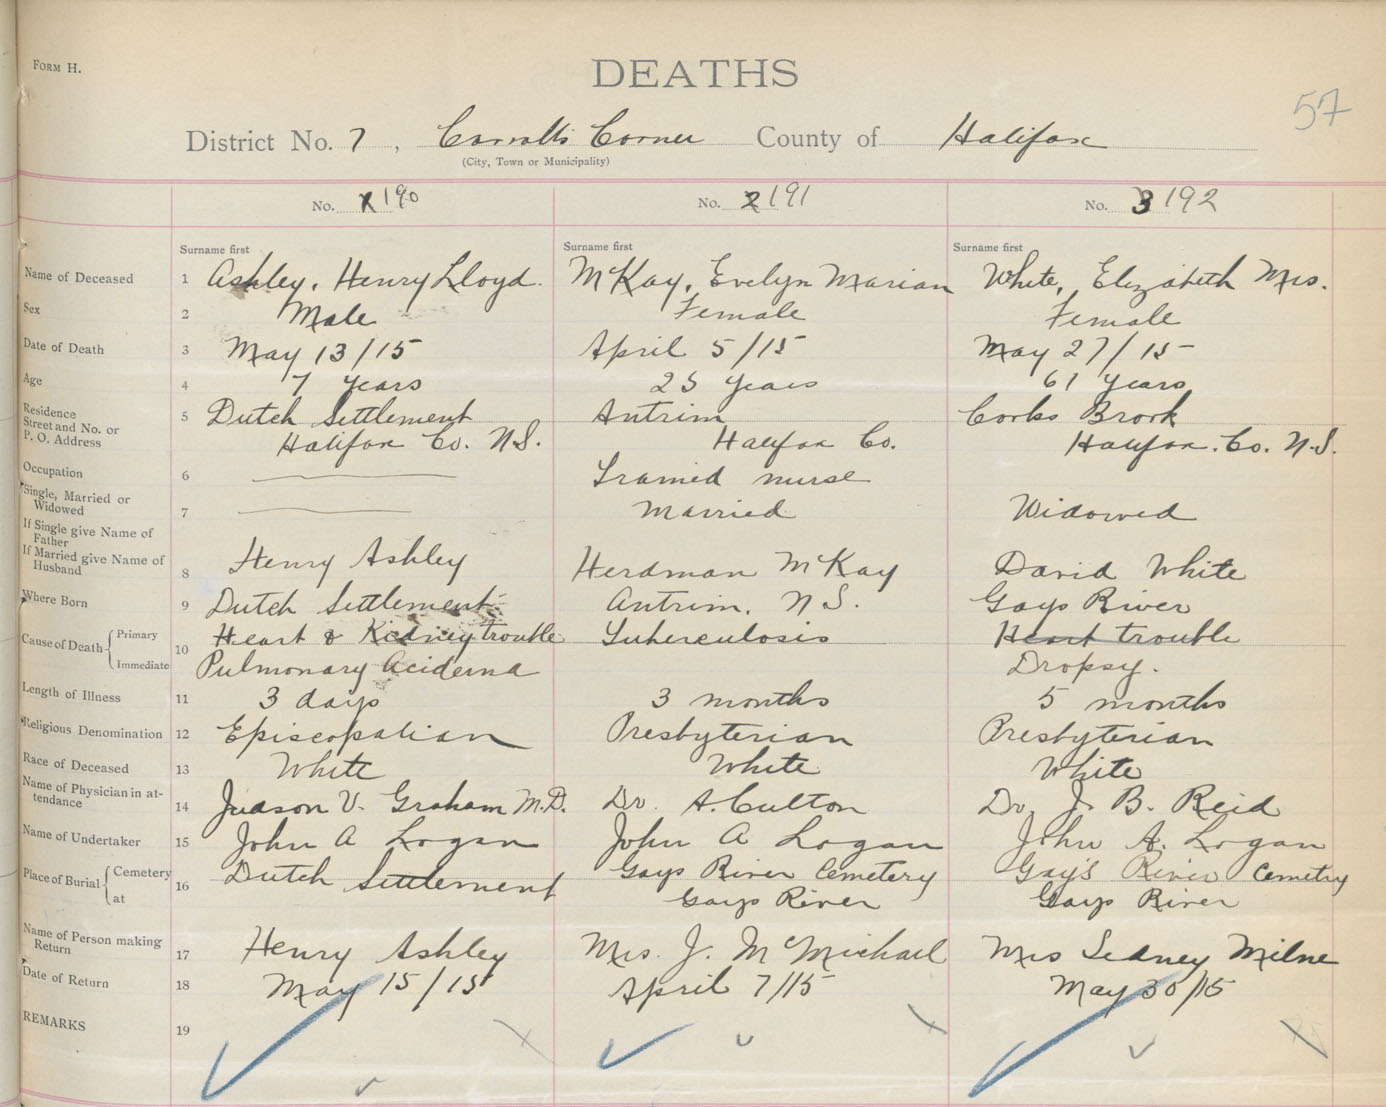 FORM H.
DEATHS
57
District No. 7, Carrolls Corner County of Halifax
(City, Town or Municipality)
No. 1 190 No. 2 191 No. 3 192
Surname first Surname first Surname first
Name of Deceased 1 Ashley, Henry Lloyd. McKay, Evelyn Marian White, Elizabeth Mrs.
Sex 2 Male Female Female
Date of Death 3 May 13/15 April 5/15 May 27/15
Age 4 7 years 25 years 61 years
Residence Street and No. or P. O. Address 5 Dutch Settlement Antrim Cooks Brook
Halifax Co. N.S. Halifax Co. Halifax. Co. N.S.
Occupation 6 Trained nurse
Single, Married or Widowed 7 Married Widowed
If Single give Name of Father
If Married give Name of Husband 8 Henry Ashley Herdman McKay David White
Where Born 9 Dutch Settlement Antrim. N.S. Gays River
Cause of Death Primary 10 Heart & Kidney trouble Tuberculosis Heart trouble
Immediate Pulmonary Dropsy.
Length of Illness 11 3 days 3 months 5 months
Religious Denomination 12 Episcopalian Presbyterian Presbyterian
Race of Deceased 13 White White White
Name of Physician in attendance 14 Judson V. Graham M.D. Dr. A. Culton Dr. J. B. Reid
Name of Undertaker 15 John A Logan John A Logan John A. Logan
Place of Burial Cemetery 16 Dutch Settlement Gays River Cemetery Gay's River Cemetry
at Gays River Gays River
Name of Person making Return 17 Henry Ashley Mrs. J. McMichael Mrs Sedney Milne
Date of Return 18 May 15/15 April 7/15 May 30/15
REMARKS 19